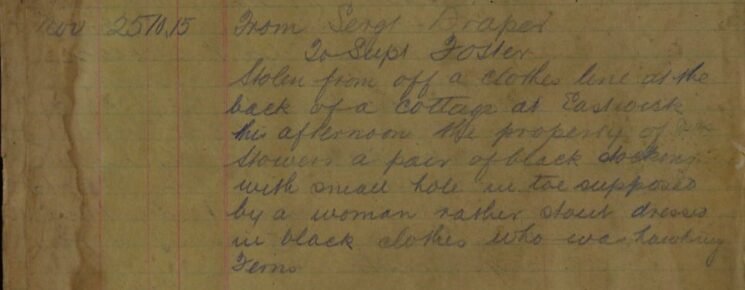 Nov 25th 15 From Sergt Draper
To Supt Foster
Stolen from off a clothes line at the
back of a cottage at Eastwick
this afternoon the property of Mrs
Stowers a pair of black stockings
with small hole in toe supposed
by a woman rather stout dressed
in black clothes who was hawking
Ferns